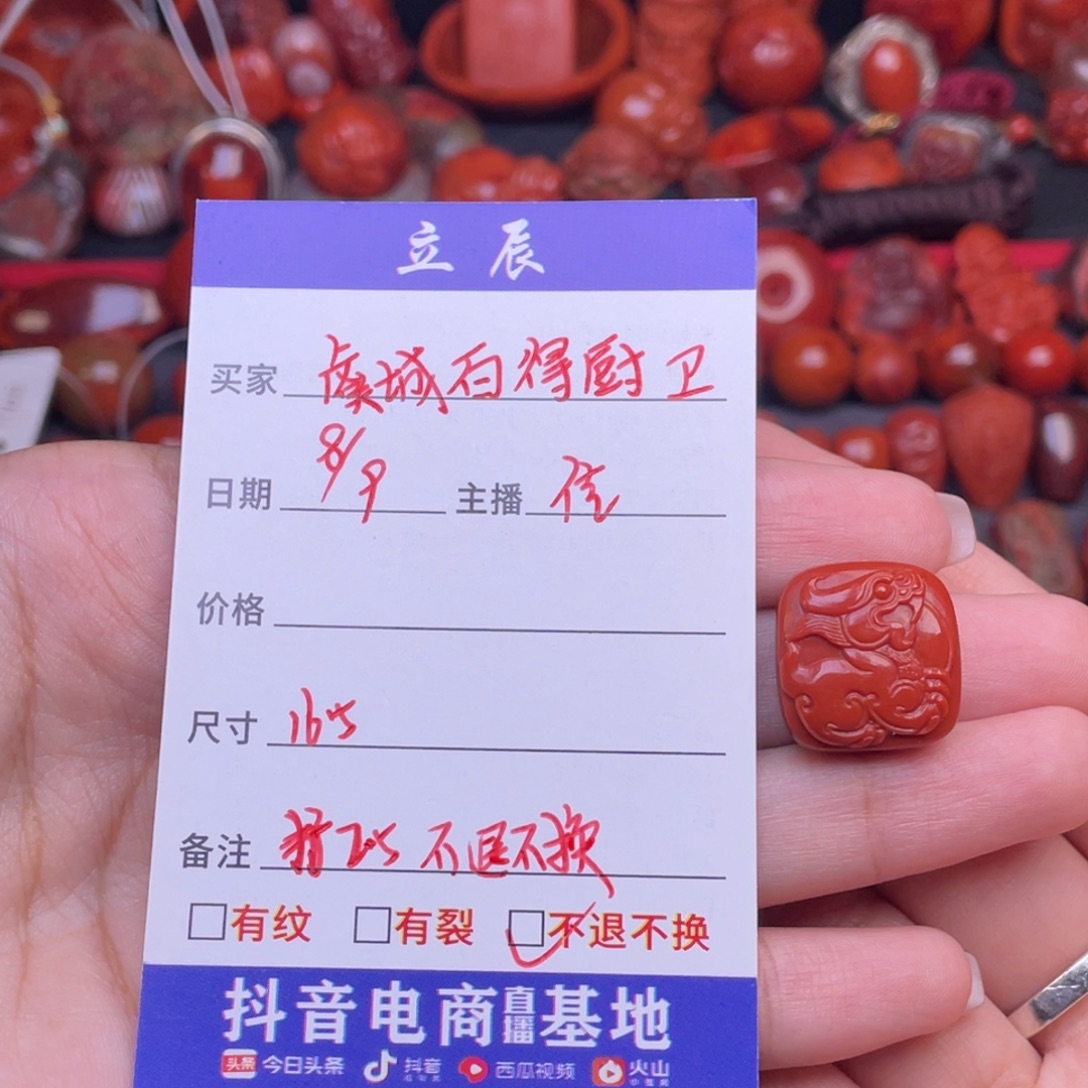 立辰
买家 虞城百得厨卫
日期 8/9 主播 信
价格
尺寸 165
备注 不退不换
有纹 有裂 不退不换
抖音电商直播基地
头条 今日头条 抖音 西瓜视频 火山